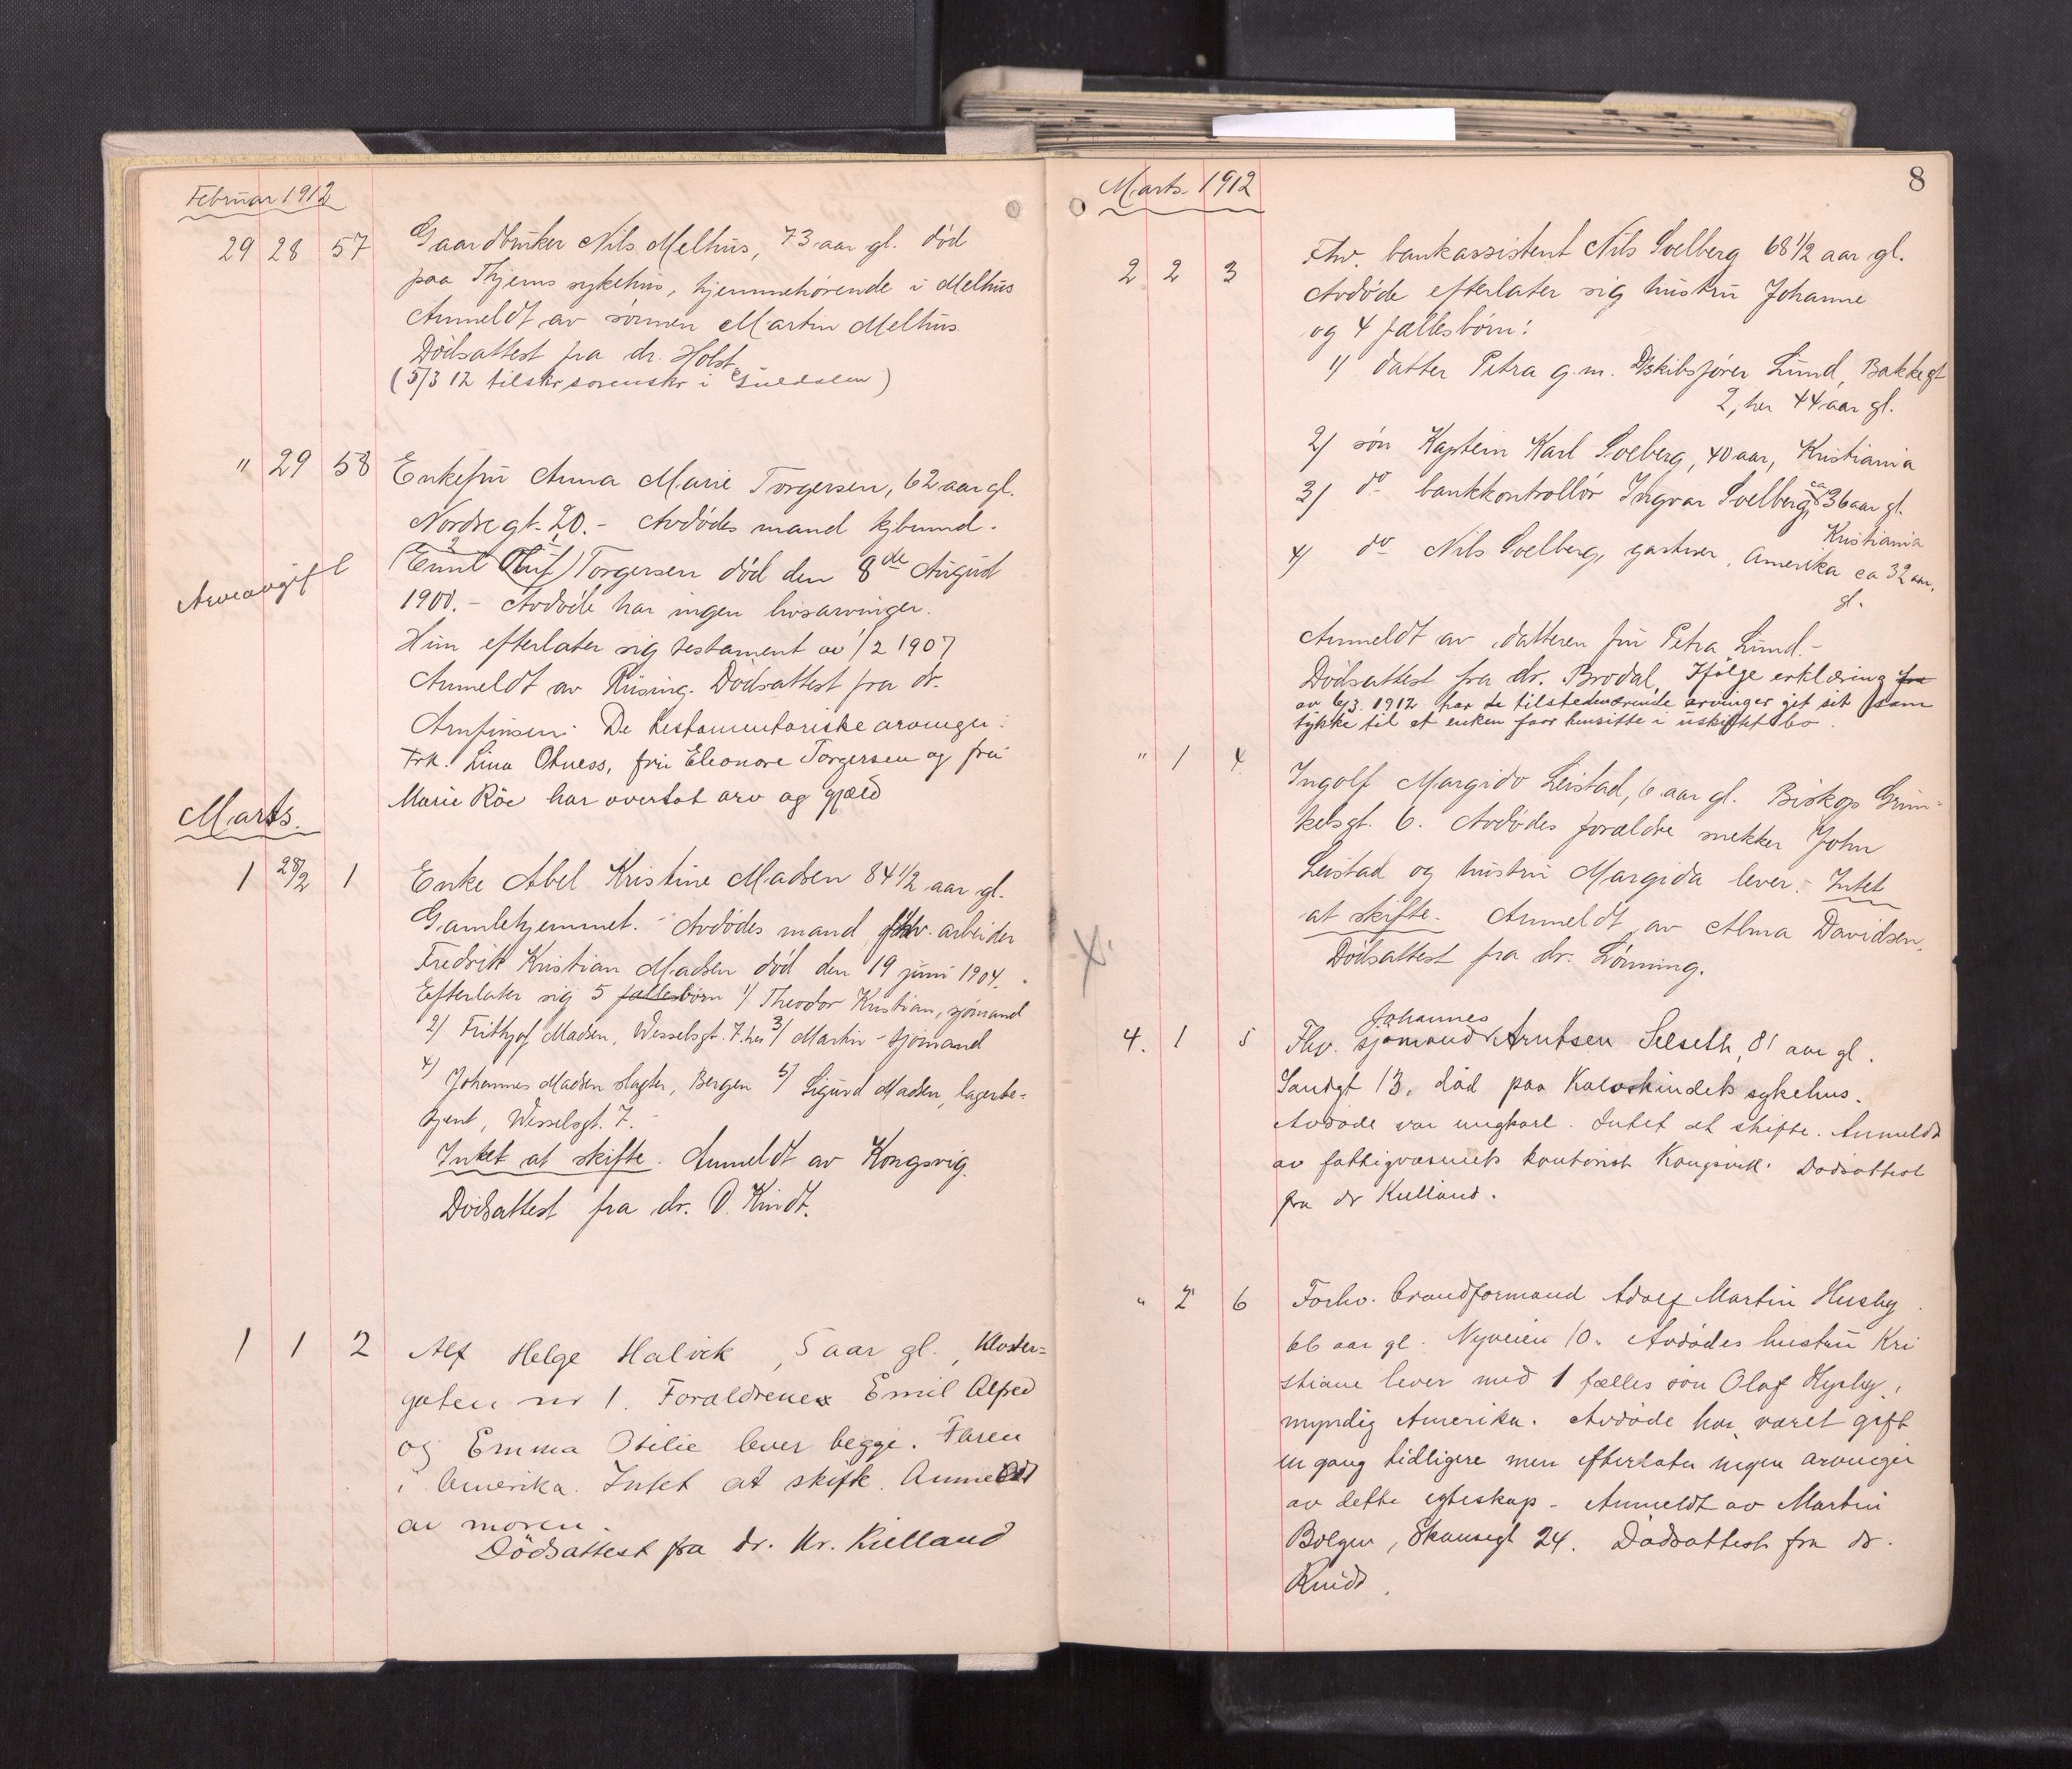 Februar 1912
29 28 57 Gaardbruker Nils Melhus, 73 aar gl. død
paa Thjems sykehus, hjemmehørende i Melhus
Anmeldt av sønnen Martin Melhus.
Dødsattest fra dr. Holst.
(5/3 12 tilskr sorenskr i Guldalen)
" 29 58 Enkefru Anna Marie Torgersen, 62 aar gl.
Nordregt. 20. - Avdødes mand kjbmnd.
(Emil Oluf) Torgersen død den 8de August
Arveavgift
1900. - Avdøde har ingen livsarvinger.
Hun efterlater sig testament av 1/2 1907
Anmeldt av Riising. Dødsattest fra dr.
Arnfinsen. De testamentariske arvinger:
Frk. Lina Otness, fru Eleonore Torgersen og fru
Marie Röe har overtat arv og gjæld
Marts.
1 28/2 1 Enke Abel Kristine Madsen 84 1/2 aar gl.
Gamlehjemmet. - Avdødes mand fhv. arbeider
Fredrik Kristian Madsen død den 19 juni 1904.
Efterlater sig 5 fællesbörn 1/ Theodor Kristian, sjømand
2/ Frithjof Madsen, Wesselsgt. 7. her 3/ Martin - sjømand
4/ Johannes Madsen slagter, Bergen 5/ Sigurd Madsen, lagerbe-
tjent, Wesselsgt. 7.
Intet at skifte. Anmeldt av Kongsvig.
Dødsattest fra dr. O. Kindt.
1 1 2 Alf Helge Halvik, 5 aar gl., Kloster=
gaten nr 1. Forældrene Emil Alfred
og Emma Otilie lever begge. Faren
i Amerika. Intet at skifte. Anmeldt
av moren.
Dödsattest fra dr. Kr. Kielland
8
Marts. 1912
2 2 3 Fhv. bankassistent Nils Solberg 68 1/2 aar gl.
Avdøde efterlater sig hustru Johanne
og 4 fællesbørn:
1/ datter Petra g.m. D/skibsfører Lund, Bakkegt
2, her 44 aar gl.
2/ søn Kaptein Karl Solberg, 40 aar, Kristiania
3/ do bankkontrollør Ingvar Solberg, ca 36 aar gl.
Kristiania
4/ do Nils Solberg, gartner, Amerika ca 32 aar,
gl.
Anmeldt av datteren fru Petra Lund. -
Dødsattest fra dr. Brodal. Ifølge erklæring fra
av 6/3 1912 har de tilstedeværende arvinger git sit sam
tykke til at enken faar hensitte i uskiftet bo.
" 1 4. Ingolf Margido Leistad, 6 aar gl. Biskop Grim-
kelsgt. 6. Avdødes forældre snekker John
Leistad og hustru Margida lever. - Intet
at skifte. Anmeldt av Alma Davidsen.
Dødsattest fra dr. Lønning.
X
Johannes
4. 1 5 Fhv. sjømand Arntsen Selseth, 81 aar gl.
Sandgt 13, død paa Kalvskindets sykehus.
Avdøde var ungkarl. Intet at skifte. Anmeldt
av fattigvæsenets kontorist Kongsvik. Dødsattest
fra dr Kielland.
" 2 6 Forhv. brandformand Adolf Martin Husby
66 aar gl. Nyveien 10. Avdødes hustru Kri
stiane lever med 1 fælles søn Olaf Husby,
myndig Amerika. Avdøde har været gift
en gang tidligere men efterlater ingen arvinger
av dette egteskap - Anmeldt av Martin
Bolgen, Skansegt 24. Dødsattest fra dr.
Kindt.